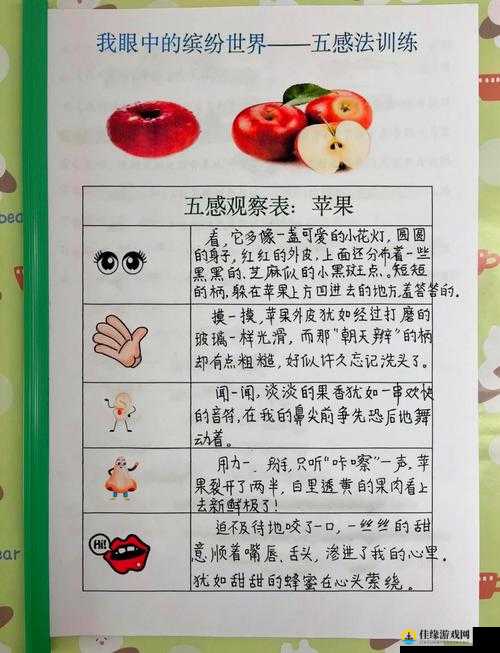 我眼中的缤纷世界——五感法训练
五感观察表：苹果
看，它多像一盏可爱的小花灯，圆圆
的身子，红红的外皮，上面还分布着一些
黑黑的、芝麻似的小黑斑点、短短
的柄，躲在苹果上方凹进去的地方，羞答答的。
摸一摸，苹果外皮犹如经过打磨的
玻璃一样光滑，而那“朝天辫”的柄
却有点粗糙，好似许久忘记洗头了。
闻一闻，淡淡的果香犹如一串欢快
的音符，在我的鼻尖前争先恐后地舞
动着。
用力一掰，只听“咔嚓”一声，苹
果裂开了两半，白里透黄的果肉看上
去新鲜极了！
Hi!
迫不及待地咬了一口，一丝丝的甜
意顺着嘴唇、舌头，渗进了我的心里。
犹如甜甜的蜂蜜在心头萦绕。
bear
bear
佳缘游戏网